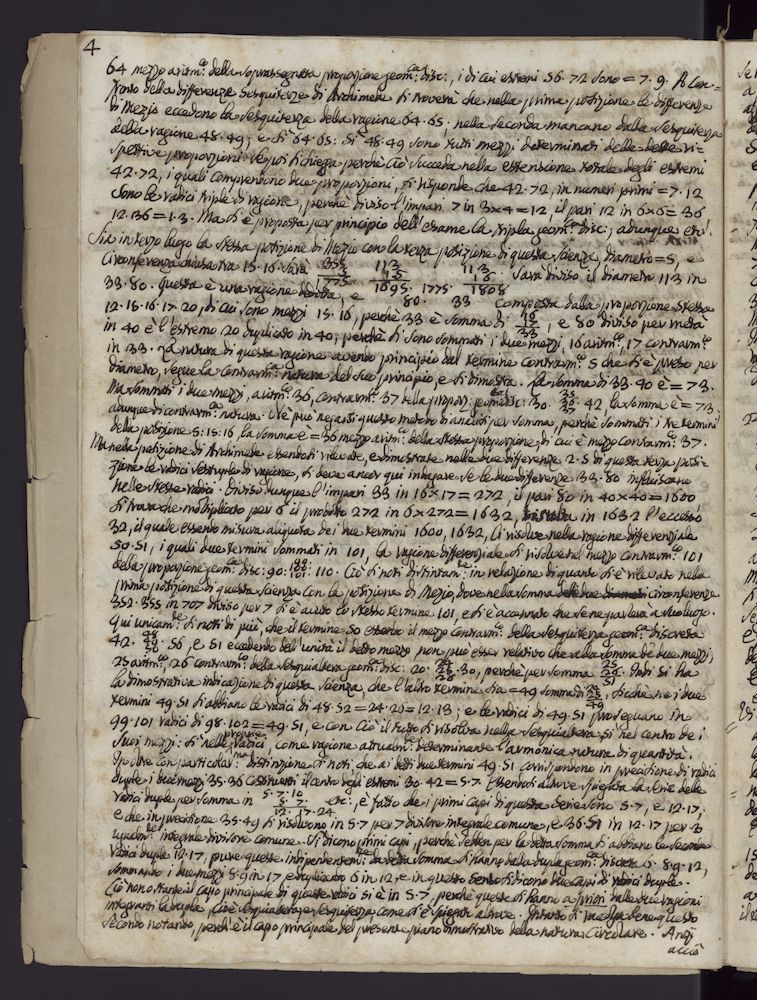 4
64 mezzo aritm.º della soprassegnata proporzione geom.ca disc:, i di cui estremi 56. 72 sono = 7. 9. A Con-
fronto delle differenze sesquiterze di Archimede si troverà che nella prima posizione le differenze
di Mezio eccedono la sesquiterza della ragione 64. 65; nella seconda mancano dalla sesquiterza
della ragione 48. 49; e sì 64. 65: sì 48. 49 sono tutti mezzi determinati delle dette ri-
spettive proporzioni. Se poi si chiegga perchè ciò succeda nella estensione totale degli estremi
42. 72, i quali comprendono due proporzioni, si risponde che 42. 72, in numeri primi = 7. 12
sono le radici triple di ragione, perchè diviso l'impari 7 in 3×4 = 12, il pari 12 in 6×6 = 36
12. 36 = 1. 3. Ma si è proposta per principio dell'esame la tripla geom.ca disc:; adunque etc.
Sia in terzo luogo la stessa posizione di Mezio con la terza posizione di questa scienza, diametro = 5, e
Circonferenza chiusa tra 15. 16. Sarà 355 113 113 Sarà diviso il diametro 113 in
5 15 16
1775 1695. 1775. 1808
33. 80. Questa è una ragione , e 80. 33 composta dalla proporzione stessa
12. 15. 16. 17. 20, di cui sono mezzi 15. 16, perchè 33 è somma di 16 17 33, e 80 diviso per metà
in 40 è l'estremo 20 duplicato in 40; perchè si sono sommati i due mezzi 16 aritm.º, 17 contrarm.º
in 33. La natura di questa ragione avendo principio dal termine contrarm.º 5 che si è preso per
diametro, segue la contrarm.ca natura del suo principio, e si dimostra. La somma di 33. 40 è = 73.
Ma sommati i due mezzi, aritm.º 36, contrarm.º 37 della propor: geometrica 30. 35 36 37. 42 la somma è = 73;
adunque di contrarm.ca natura. Nè può negarsi questo metodo di analisi per somma, perchè sommati i tre termini
della posizione 5: 15: 16 la somma è = 36 mezzo aritm.º della stessa proporzione, di cui è mezzo contrarm.º 37.
Ma nella posizione di Archimede essendosi rilevate, e dimostrate nelle due differenze 2. 5 di questa terza posi-
zione le radici sestuple di ragione, si deve ancor qui indagare se le due differenze 33. 80 influiscano
nelle stesse radici. Diviso dunque l'impari 33 in 16×17 = 272, il pari 80 in 40×40 = 1600
si trova che moltiplicato per 6 il prodotto 272 in 6×272 = 1632, in 1632 l'eccesso
32, il quale essendo misura aliquota dei due termini 1600, 1632, li risolve nella ragione differenziale
50. 51, i quali due termini sommati in 101, la ragione differenziale si risolve nel mezzo contrarm.º 101
della proporzione geom.ca disc: 90. 99 100 101. 110. Ciò si noti distintam.te in relazione di quanto si è rilevato nella
prima posizione di questa scienza con la posizione di Mezio, dove nella somma delle due circonferenze
352. 355 in 707 diviso per 7 si è avuto lo stesso termine 101, e si è accennato che se ne parlava a suo luogo.
Qui unicam.te si noti di più, che il termine 50 essendo il mezzo contrarm.º della sesquiterza geom.ca discreta
42. 48 49 50. 56, e 51 eccedendo dell'unità il detto mezzo non può esser relativo che alla somma de due mezzi,
25 aritm.º, 26 contrarm.º della sesquialtera geom.ca disc: 20. 24 25 26. 30, perchè per somma 25 26 51. Indi si ha
la dimostrativa indicazione di questa scienza, che l'altro termine sia = 49 somma di 24 25 49. Sicchè ne i due
termini 49. 51 si abbiano le radici di 48. 52 = 24. 26 = 12. 13; e le radici di 49. 51 proseguano in
99. 101 radici di 98. 102 = 49. 51, e con ciò il tutto si risolva nella sesquialtera sì nel centro de i
suoi mezzi: sì nelle proprie radici, come ragione attualm.te determinante l'armonica natura di quantità.
In oltre con particolar.ma distinzione si noti che ai detti due termini 49. 51 corrispondono in precisione di radici
duple i due mezzi 35. 36 costituenti il centro degli estremi 30. 42 = 5. 7. Essendosi altrove spiegata la serie delle
radici duple per somma in 5. 7. 10 5. 7 12. 17. 24 etc:, è fatto che i primi Capi di questa serie sono 5. 7, e 12. 17;
e che in precisione 35. 49 si risolvono in 5. 7 per 7 divisore integrale comune, e 36. 51 in 12. 17 per 3
ugualm.te integrale divisore comune. Si dicono primi capi, perchè sebben per la detta somma si abbiano le seconde
radici duple 12. 17, pure queste indipendentem.te da detta somma si hanno dalla dupla geom.ca discreta 6. 8 9. 12,
sommando i due mezzi 8. 9 in 17, e duplicato 6 in 12, e in questo senso si dicono due Capi di radici duple.
Ciò non ostante il capo principale di queste radici si è in 5. 7, perchè queste si hanno a priori dalle due ragioni
integranti la dupla, cioè sesquialtera, e sesquiterza, come si è spiegato altrove. Intanto si raccolga bene questo
secondo notando, perchè è il capo principale del presente piano dimostrativo della natura Circolare. Anzi
acciò